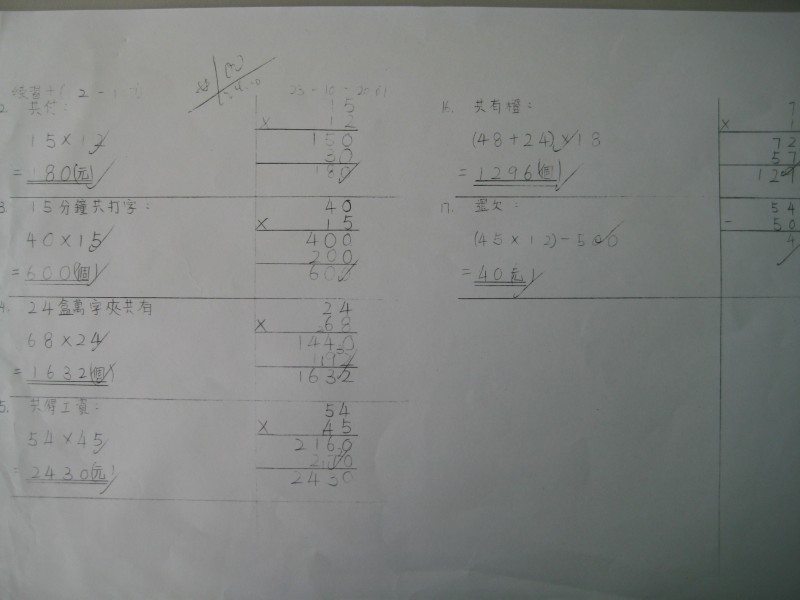 23-10-20
2. 共付:
15×12
=180(元)
15
× 12
150
30
180
3. 15分鐘共打字:
40×15
=600(個)
40
× 15
400
200
600
4. 24盒萬字夾共有
68×24
=1632(個)
24
× 68
1440
192
1632
5. 共得工資:
54×45
=2430(元)
54
× 45
2160
270
2430
16. 共有橙:
(48+24)×18
=1296(個)
×
72
57
17. 還欠:
(45×12)-500
=40元
54
- 50
4